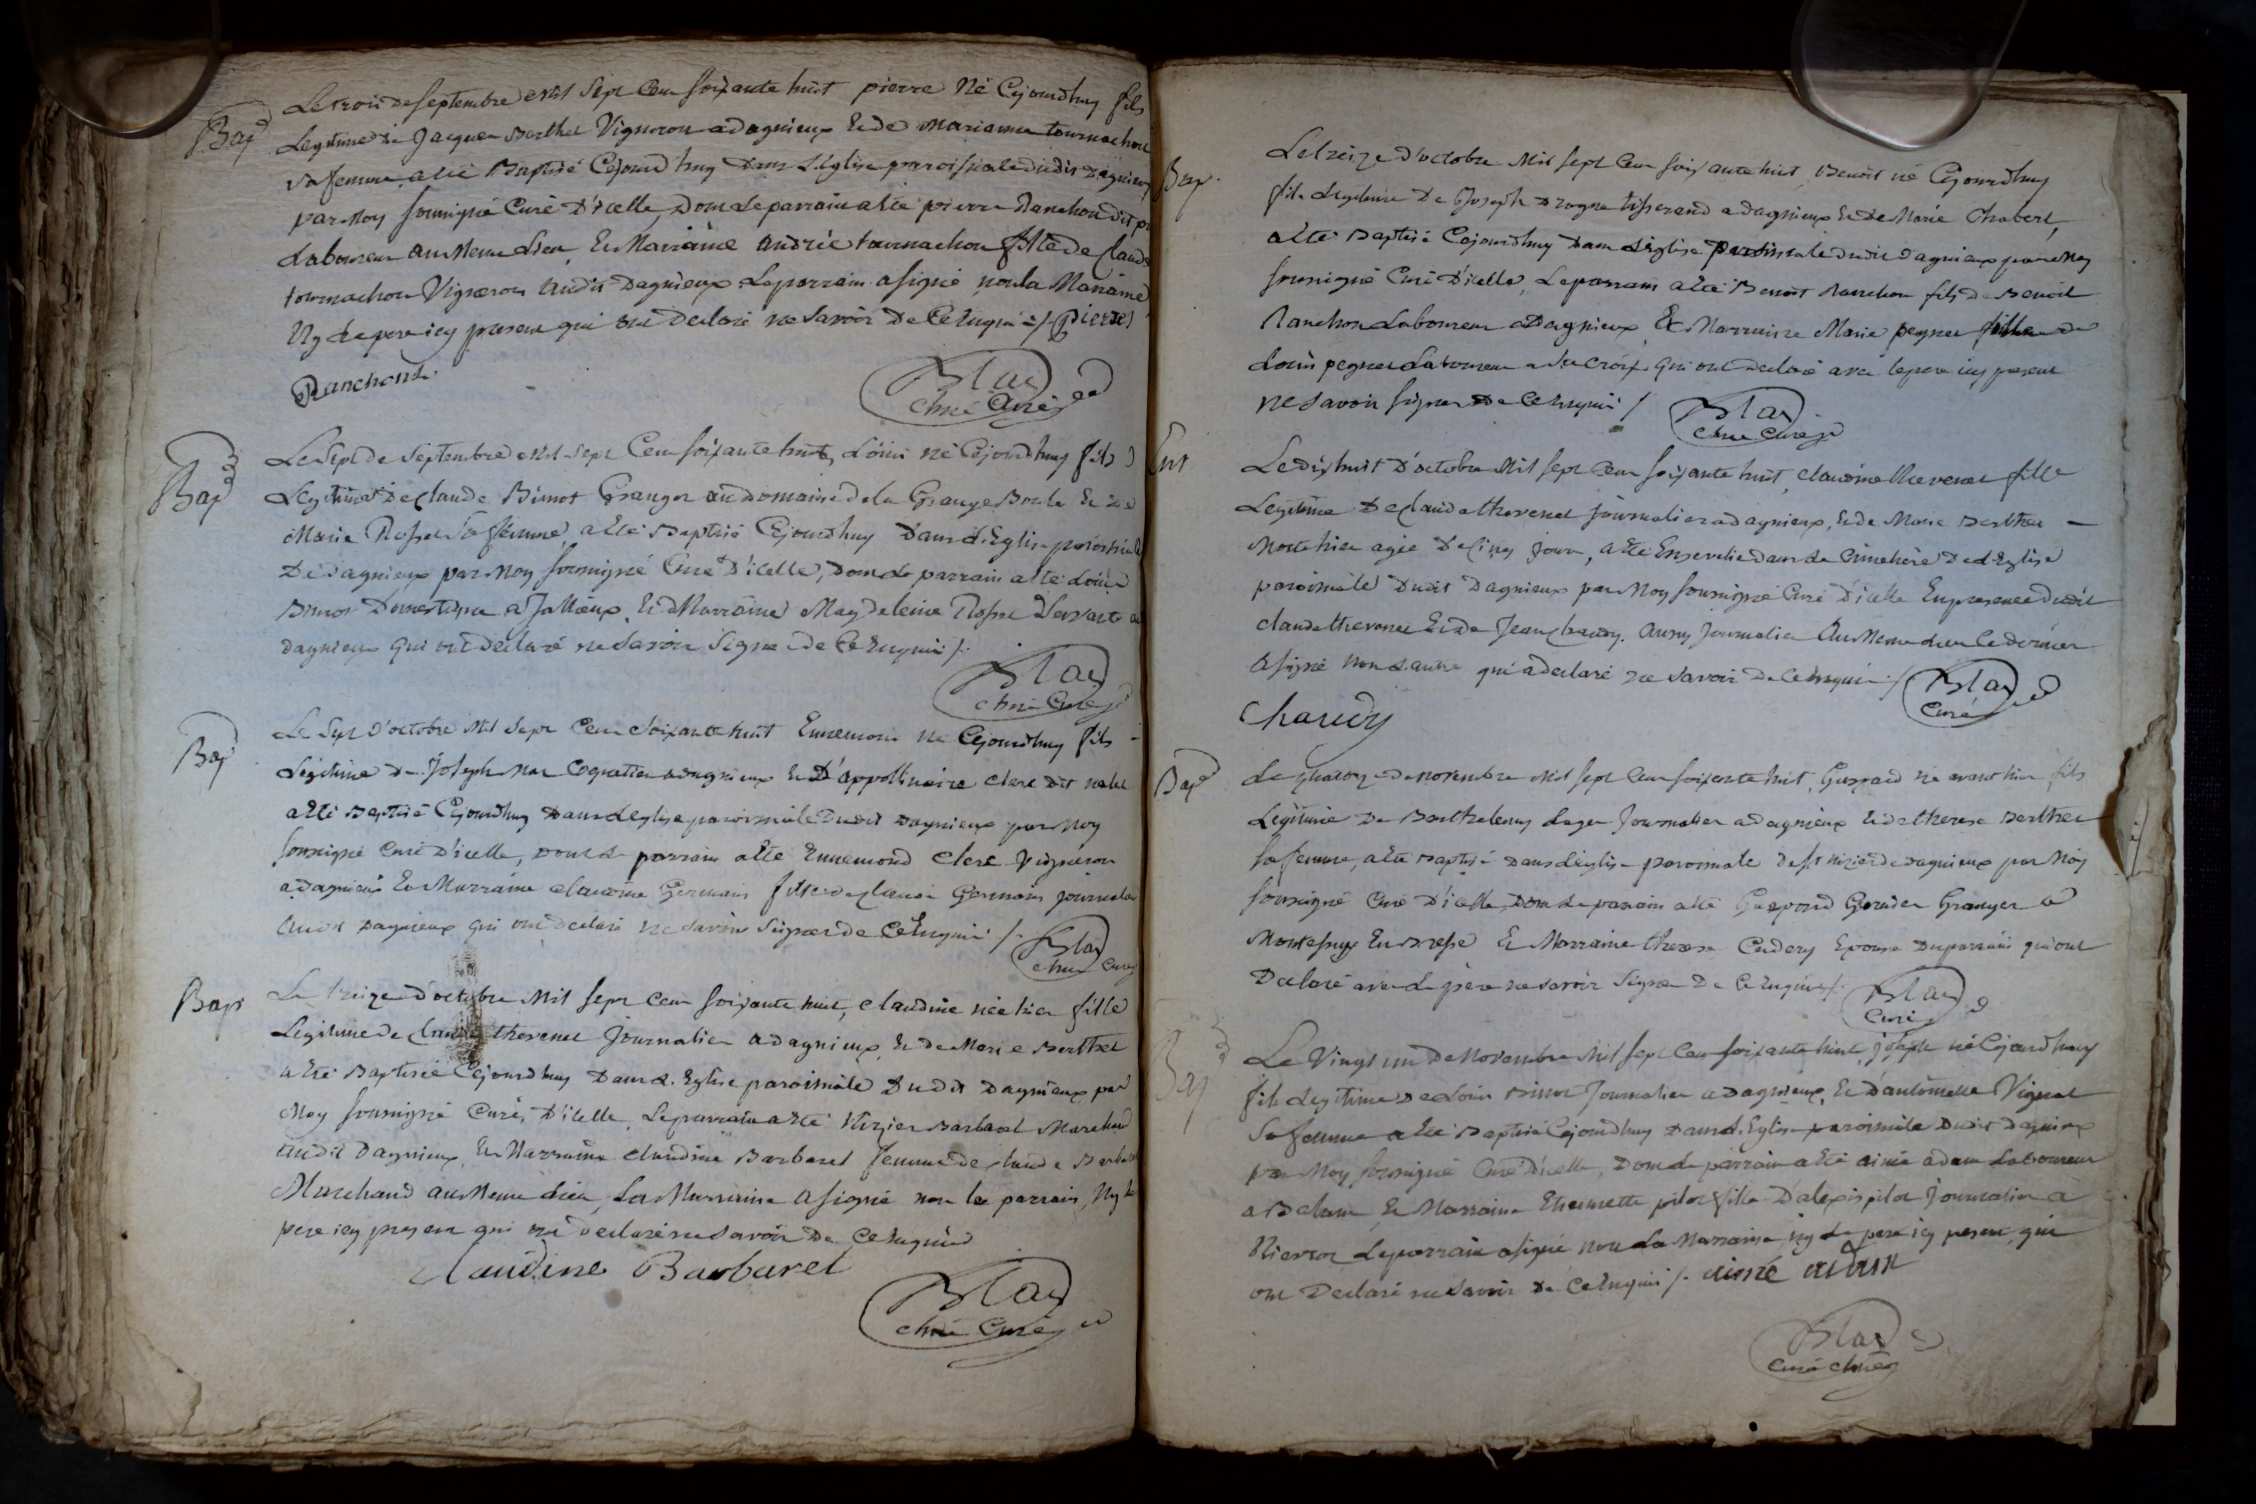 Bapᵈ
Le trois de septembre mil sept cent soixante huit pierre né Cejourdhuy fils
Legitime de Jacques Berthet Vigneron a dagnieux et de marianne tournachon
sa femme a été Baptisé Cejourdhuy dans L'Eglise paroissiale dudit dagnieux
par Moy soussigné Curé D'icelle, Dont Le parrain a été pierre Ranchon dit
Laboureur au Meme Lieu, Et Marraine andrée tournachon fille de Claude
tournachon Vigneron audit Dagnieux Le parrain a signé non la Maraine
Ny Le pere icy present qui ont Declaré ne Savoir De Ce Enquis /. pierre
Ranchon
Blad
curé
Bapᵈ
Le Sept de Septembre mil sept Cent soixante huit, Loüis né Cejourdhuy fils
Legitime de Claude Binot Granger au domaine de la Grange Et de
Marie Rosset Sa femme, a été Baptisé Cejourdhuy Dans L'Eglise paroissiale
De dagnieux par Moy soussigné Curé D'icelle, Dont Le parrain a été Loüis
Binot Domestique a Jallieux Et Marraine Magdeleine Rosset Servante a
dagnieux qui ont declaré ne Savoir Signer de Ce Enquis /.
Blad
curé
Bap
Le Sept d'octobre Mil Sept Cent Soixante huit Ennemond né Cejourdhuy fils
Légitime de Joseph a dagnieux Et D'appollinaire Clere dit
a été Baptisé Cejourdhuy Dans L'eglise paroissiale Dudit Dagnieux par Moy
soussigné Curé D'icelle, Dont Le parrain a été Ennemond Clere Vigneron
a dagnieux Et Marraine claudine Germain fille de Claude Germain journalier
audit Dagnieux qui ont declaré ne savoir Signer de Ce Enquis /.
Blad
curé
Bap
Le treize d'octobre Mil sept Cent soixante huit, claudine née hier fille
Legitime de Claude thevenet Journalier a dagnieux, Et de Marie Berthet
a été Baptisée Cejourdhuy Dans L'Eglise paroissiale Dudit Dagnieux par
Moy soussigné Curé, D'icelle, Le parrain a été Nizier Barbaret Marchand
audit Dagnieux, Et Marraine claudine Barbaret femme de claude Barbaret
Marchand au Meme Lieu, La Marraine a signé non le parrain, Ny le
pere icy present qui ont declaré ne savoir De Ce Enquis
Claudine Barbaret
Blad
curé
Bap.
Le treize d'octobre Mil sept Cent soixante huit, Benoit né Cejourdhuy
fils Legitime De Joseph Drogue tisserand a dagnieux Et De Marie Chabert,
a été Baptisé Cejourdhuy Dans L'église paroissiale dudit dagnieux par Moy
soussigné Curé D'icelle, Le parrain a été Benoit Ranchon fils de Benoit
Ranchon Laboureur a Dagnieux, Et Marraine Marie pegnet fille de
Loüis pegnet Laboureur a La Croix qui ont declaré avec le pere icy present
ne savoir signer De Ce Enquis /
Blad
curé
Ent
Le dix huit D'octobre Mil sept Cent soixante huit, claudine thevenet fille
Legitime De Claude thevenet journalier a dagnieux, Et de Marie Berthet
Morte hier agée De Cinq jours, a été Ensevelie dans Le Cimetiere De L'Eglise
paroissiale Dudit Dagnieux par Moy soussigné Curé D'icelle En presence dudit
claude thevenet Et De Jean chaudy aussy Journalier Au Meme Lieu Ce dernier
a signé non L'autre qui a declaré ne savoir De Ce Enquis /
Blad
Curé
Chaudy
Bapᵈ
Le quatorze De novembre Mil sept Cent soixante huit, Gaspard né avant hier fils
Légitime De Barthelemy Leger Journalier a dagnieux Et de therese Berthet
sa femme, a été Baptisé Dans L'église paroissiale De St nizier de Dagnieux par Moy
soussigné Curé D'icelle, Dont Le parrain a été Gaspard Granger a
Montessuy En Bresse Et Marraine therese Cudery Epouse Du parrain qui ont
Declaré avec Le père ne savoir Signer De Ce Enquis /.
Blad
Curé
Bap
Le Vingt un De Novembre Mil sept Cent soixante huit, joseph né Cejourdhuy
fils Legitime De Loüis Binot Journalier a Dagnieux, Et D'antoinette Vignat
Sa femme a été Baptisé Cejourdhuy Dans L'Eglise paroissiale Dudit Dagnieux
par Moy soussigné Curé D'icelle, Dont Le parrain a été aimé adam Laboureur
a Balan, Et Marraine Etiennette pilot fille D'alexis pilot Journalier a
Nievroz Le parrain a signé non La Marraine ny Le pere icy present, qui
ont Declaré ne savoir De Ce Enquis /. aimé adam
Blad
curé